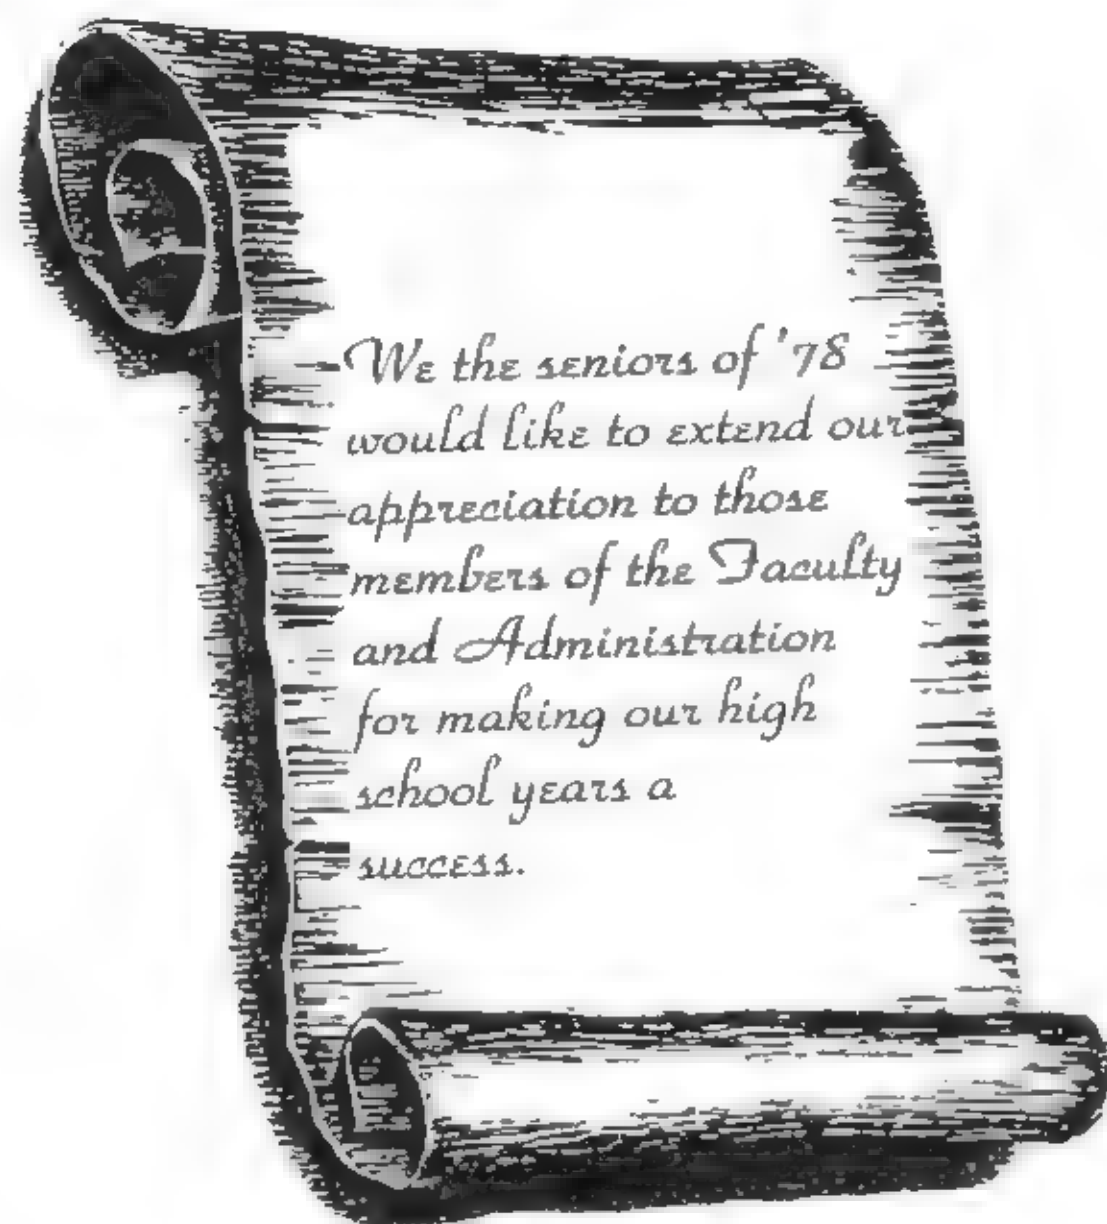 We the seniors of '78
would like to extend our
appreciation to those
members of the Faculty
and Administration
for making our high
school years a
success.